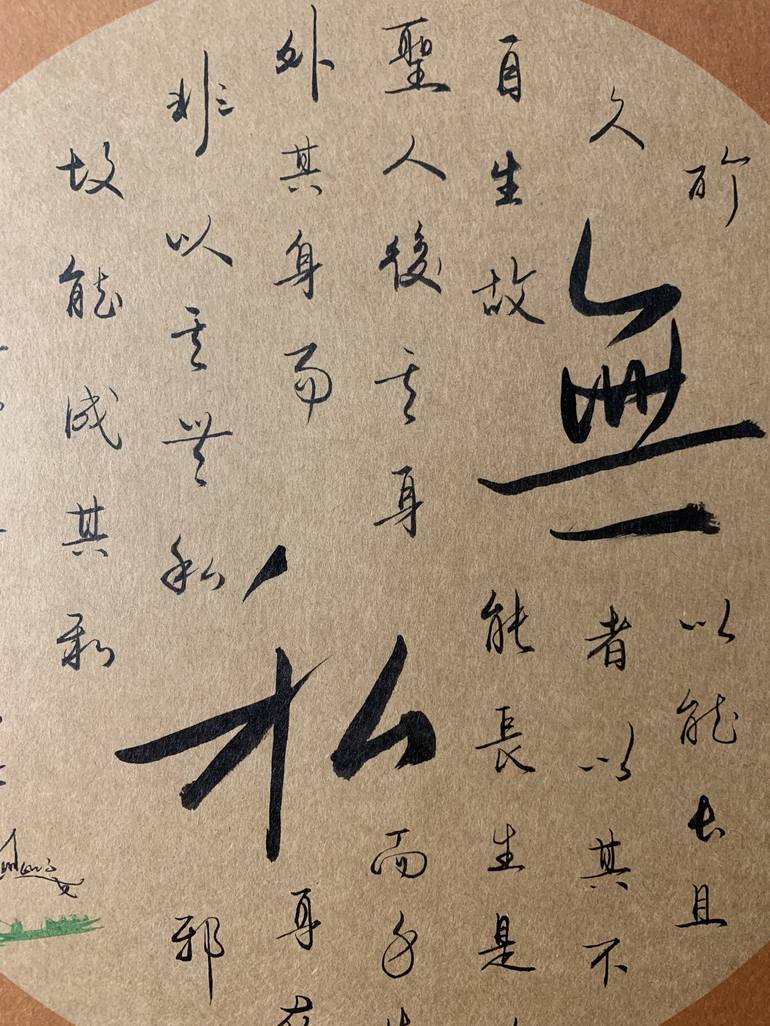 所以能长且
久者以其不
自生故能長生是
聖人後其身而身
外其身而身存
非以其無私邪
故能成其私
無私